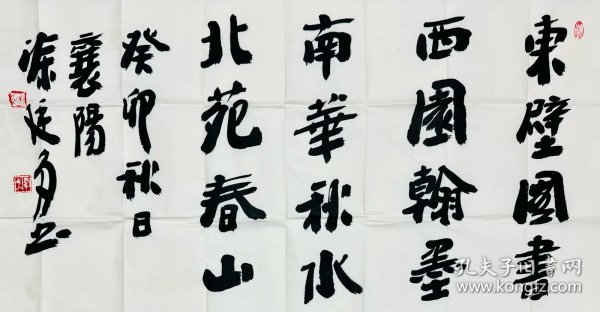 東壁圖書
西園翰墨
南華秋水
北苑春山
癸卯秋日
襄陽
涂廷多书
孔夫子旧书网
www.kongfz.com